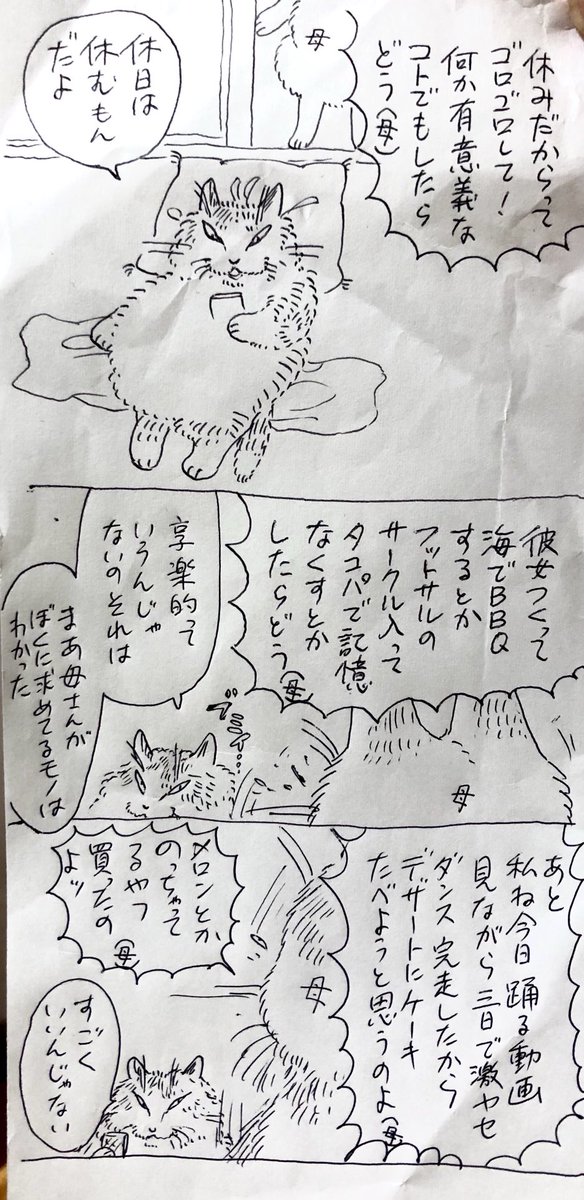 母
休みだからって
ゴロゴロして!
何か有意義な
コトでもしたら
どう(母)
休日は
休むもん
だよ
彼女つくって
海でBBQ
するとか
フットサルの
サークル入って
タコパで記憶
なくすとか
したらどう(母)
享楽的って
いうんじゃ
ないのそれは
まあ母さんが
ぼくに求めてるモノは
わかった
母
あと
私ね今日踊る動画
見ながら三日で激ヤセ
ダンス完走したから
デザートにケーキ
たべようと思うのよ(母)
母
メロンとか
のっちゃって
るやつ
買ったの
よッ(母)
すごく
いいんじゃない